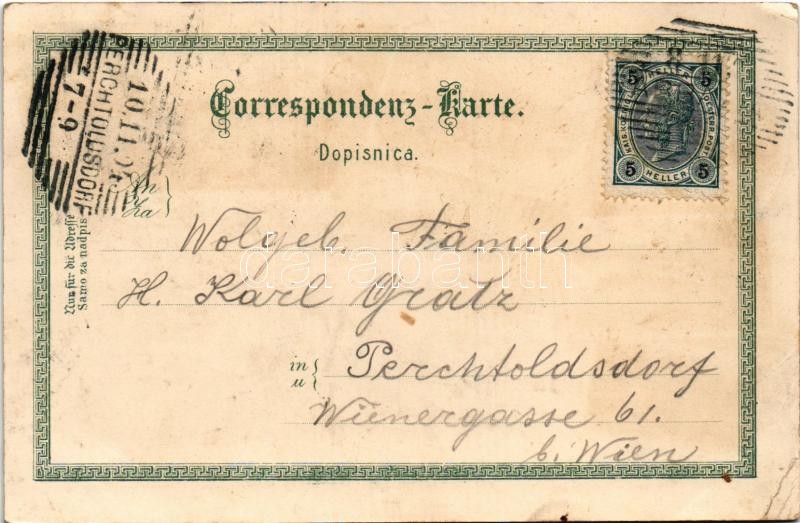 Correspondenz-Karte.
Dopisnica.
PERCHTOLDSDORF
10.11.
7-9
5 HELLER 5
5 HELLER 5
An
Za
Wolgeb. Familie
H. Karl Gratz
in
u
Perchtoldsdorf
Wienergasse 61.
b. Wien
Nur für die Adresse
Samo za nadpis
darabanth